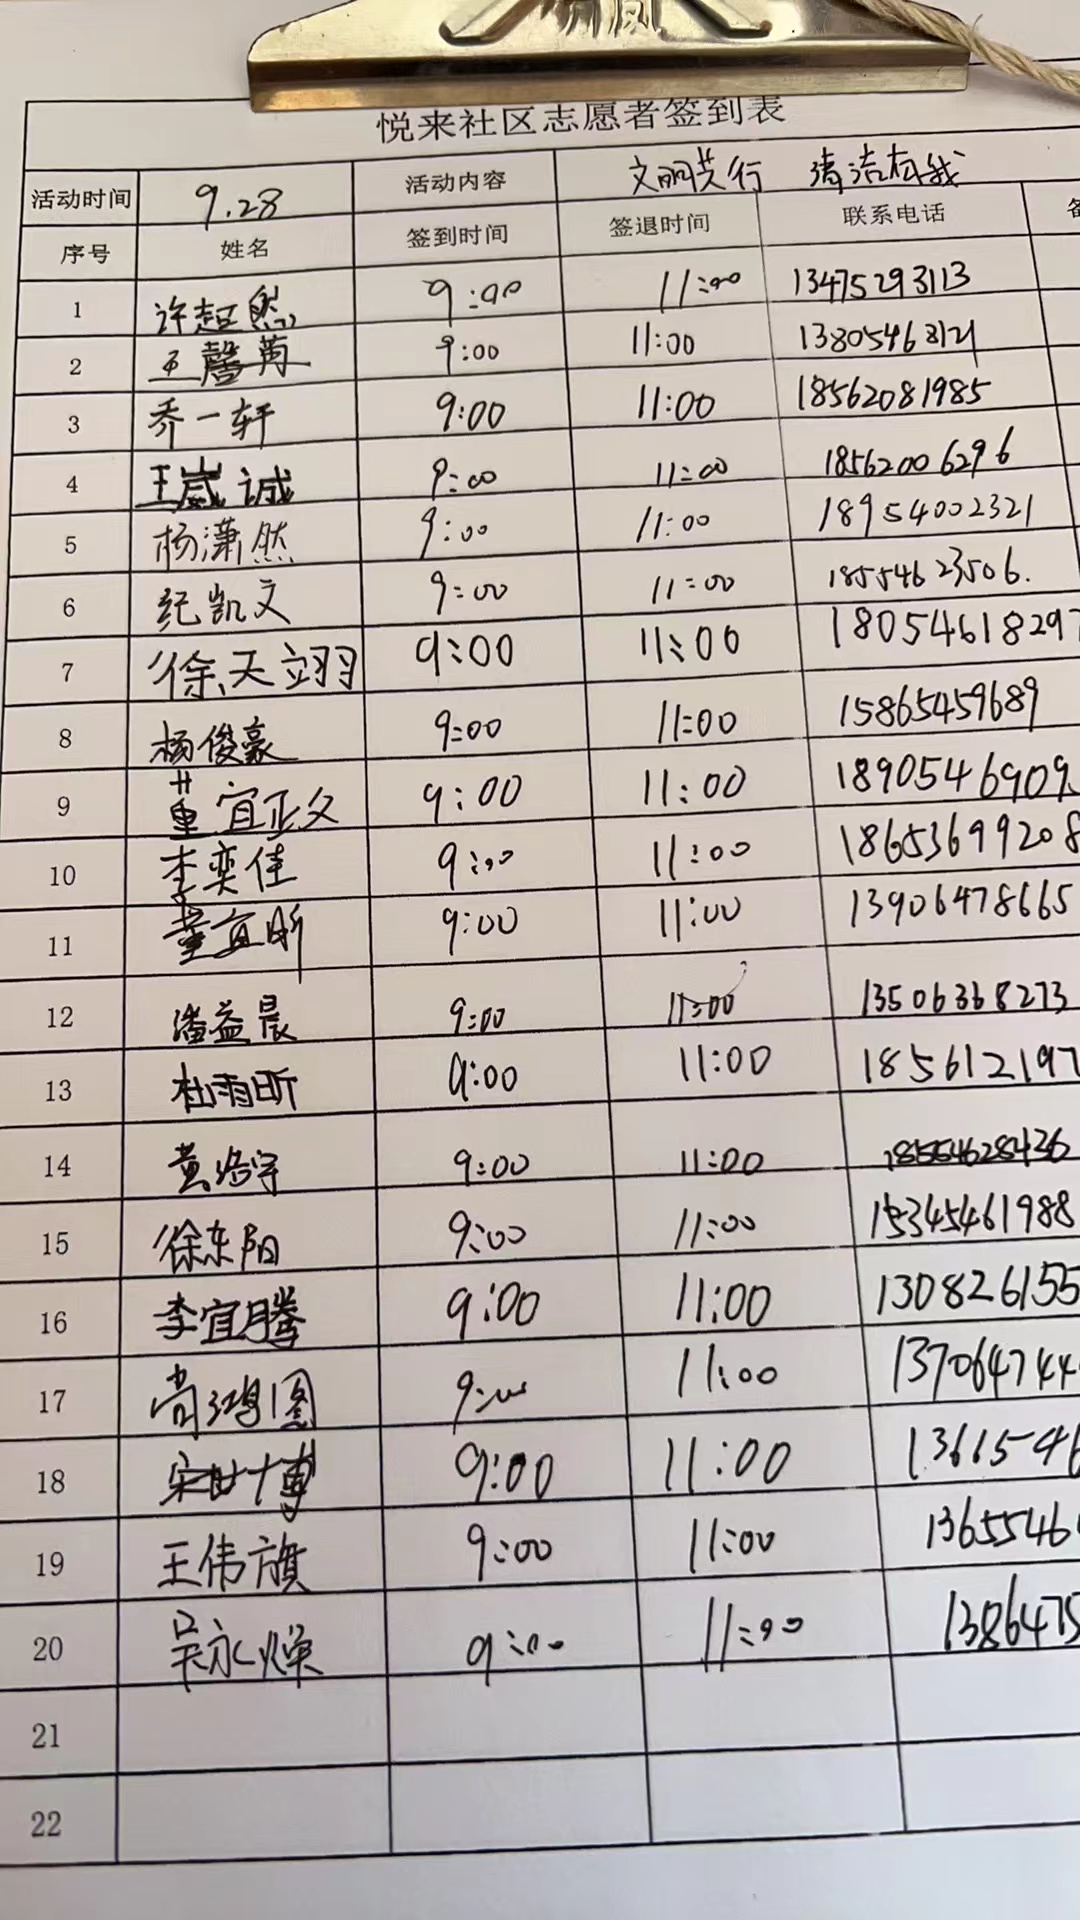 悦来社区志愿者签到表
活动时间 9.28 活动内容 文明芡行 清洁有我
序号 姓名 签到时间 签退时间 联系电话
1 许超然 9:00 11:00 13475293113
2 王馨苒 9:00 11:00 13805463121
3 乔一轩 9:00 11:00 18562081985
4 王崴诚 9:00 11:00 18562006296
5 杨潇然 9:00 11:00 18954002321
6 纪凯文 9:00 11:00 18554623506.
7 徐天翊 9:00 11:00 18054618297
8 杨俊豪 9:00 11:00 15865459689
9 董宜政 9:00 11:00 1890546909
10 李奕佳 9:00 11:00 18653699208
11 董宜昕 9:00 11:00 13906478665
12 潘益晨 9:00 11:00 13506368273
13 杜雨昕 9:00 11:00 185612197
14 黄浩宇 9:00 11:00 18554628436
15 徐东阳 9:00 11:00 15345461988
16 李宜腾 9:00 11:00 130826155
17 尚鸿图 9:00 11:00 137064744
18 宋世博 9:00 11:00 1361546
19 王伟旗 9:00 11:00 1365546
20 吴永焕 9:00 11:00 1386475
21
22